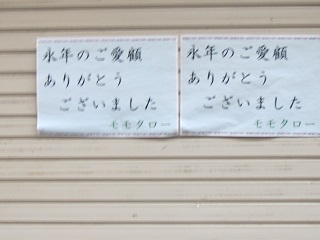 永年のご愛顧
ありがとう
ございました
モモタロー
永年のご愛顧
ありがとう
ございました
モモタロー